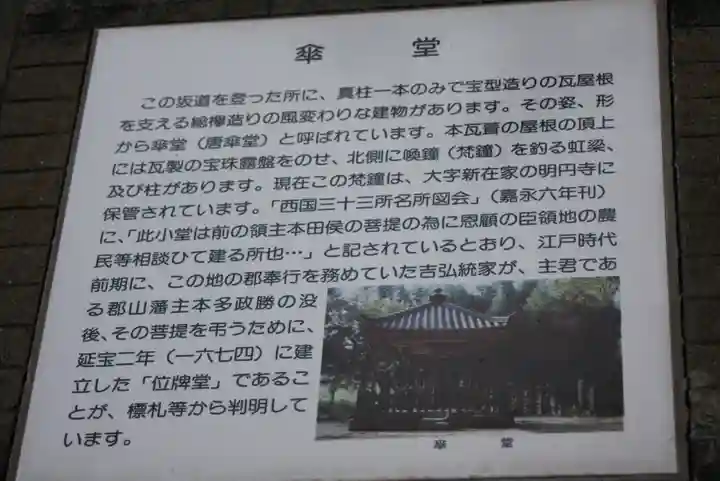 傘堂
この坂道を登った所に、真柱一本のみで宝型造りの瓦屋根
を支える総欅造りの風変わりな建物があります。その姿、形
から傘堂（唐傘堂）と呼ばれています。本瓦葺の屋根の頂上
には瓦製の宝珠露盤をのせ、北側に喚鐘（梵鐘）を釣る虹梁、
及び柱があります。現在この梵鐘は、大字新在家の明円寺に
保管されています。「西国三十三所名所図会」（嘉永六年刊）
に、「此小堂は前の領主本田侯の菩提の為に恩顧の臣領地の農
民等相談ひて建る所也…」と記されているとおり、江戸時代
前期に、この地の郡奉行を務めていた吉弘統家が、主君であ
る郡山藩主本多政勝の没
後、その菩提を弔うために、
延宝二年（一六七四）に建
立した「位牌堂」であるこ
とが、標札等から判明して
います。
傘堂